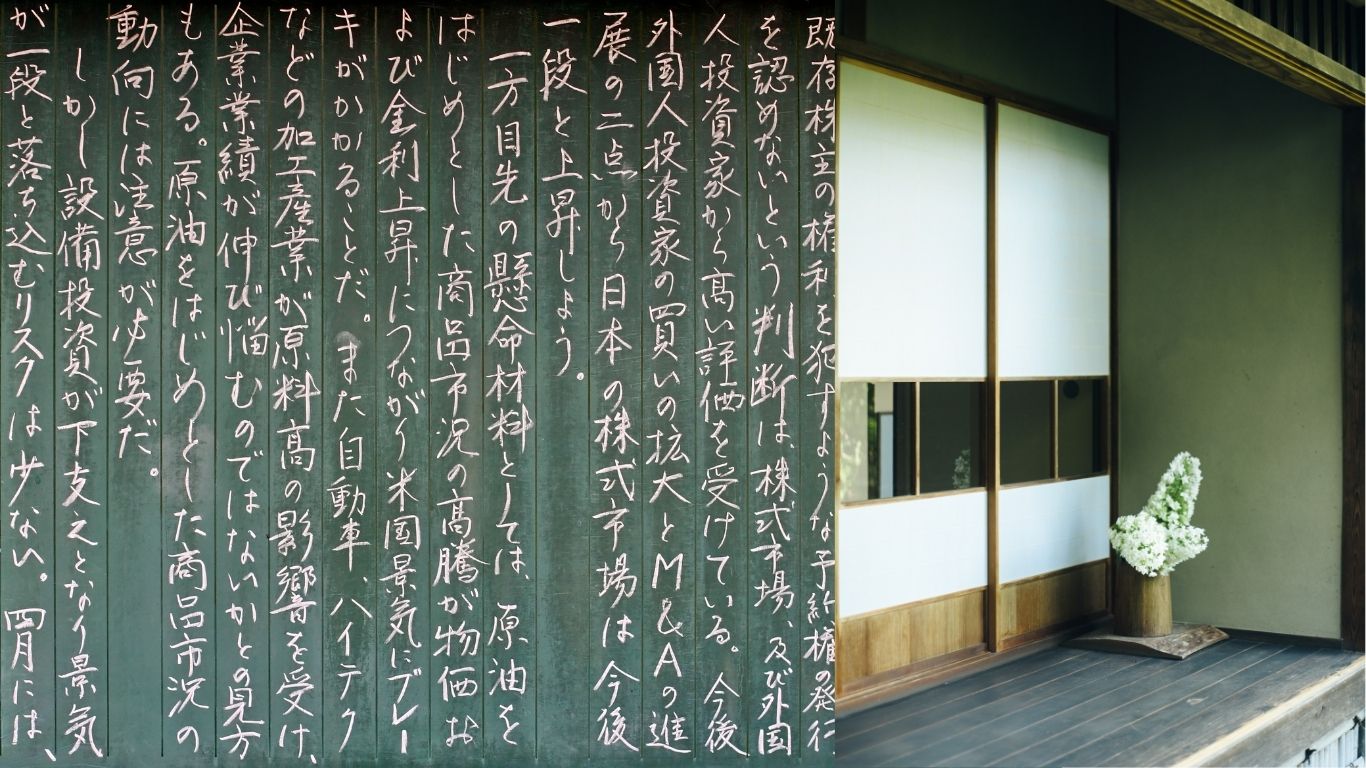 既存株主の権利を犯すような予約権の発行
を認めないという判断は、株式市場、及び外国
人投資家から高い評価を受けている。今後
外国人投資家の買いの拡大とM&Aの進
展の二点から日本の株式市場は今後
一段と上昇しよう。
一方目先の懸命材料としては、原油を
はじめとした商品市況の高騰が物価お
よび金利上昇につながり米国景気にブレー
キがかかることだ。また自動車、ハイテク
などの加工産業が原料高の影響を受け、
企業業績が伸び悩むのではないかとの見方
もある。原油をはじめとした商品市況の
動向には注意が必要だ。
しかし設備投資が下支えとなり景気
が一段と落ち込むリスクは少ない。四月には、